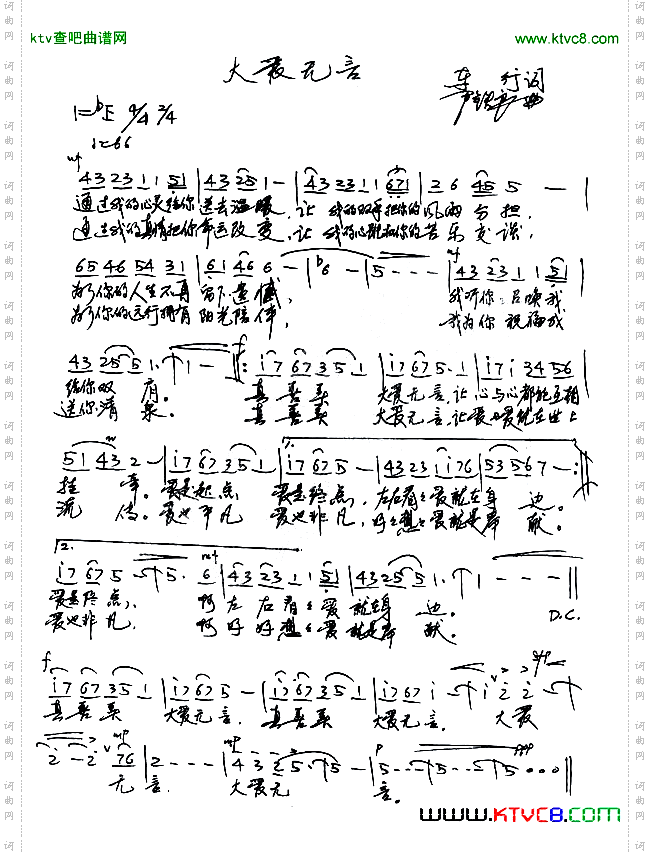 ktv查吧曲谱网
www.ktvc8.com
大爱无言
车行词
曲
1=bE 4/4 2/4
♩=66
mf
4323 11 51 | 43 251 - | 4323 11 671 | 2 6 45 5 - |
通过我的心灵给你送去温暖，让我的双手把你的风雨分担，
通过我的真情把你命运改变，让我的心和你的苦乐交谈，
65 46 54 31 | 61 46 6 - | b6 - | 5 - - - | 43 23 1 51 |
为了你的人生不再留下遗憾， 我听你召唤我
为了你的远行拥有阳光陪伴， 我为你祝福我
43 25 5 1 - 1 - ‖: i7 67 35 1 | i7 67 5 · 1 | i7 i 34 56 |
给你双肩。 真善美 大爱无言，让心与心都能互相
送你清泉。 真善美 大爱无言，让爱与爱能在世上
51 43 2 - | i7 67 35 1 | i7 67 5 - | 43 23 i 76 | 53 56 7 - :‖
挂牵。爱是起点 爱是终点，左右看看爱就在身边。
流传。爱也平凡 爱也非凡，好好想想爱就是奉献。
2.
i7 67 5 - 5 · 6 | 43 23 11 51 | 43 25 5 1 - 1 - - - ‖
爱是终点， 啊左右看看爱就在身边。
爱也非凡， 啊好好想想爱就是奉献。 D.C.
f
i7 67 35 1 | i7 67 5 - | i7 67 35 1 | i7 67 i - i 2 2 -
真善美 大爱无言，真善美 大爱无言， 大爱
2 - 2 76 | 2 - - - | 4 3 2 5 · 5 - | 5 - - 5 - - 5 000 ‖
无言， 大爱无言。
www.KTVC8.com
词曲网